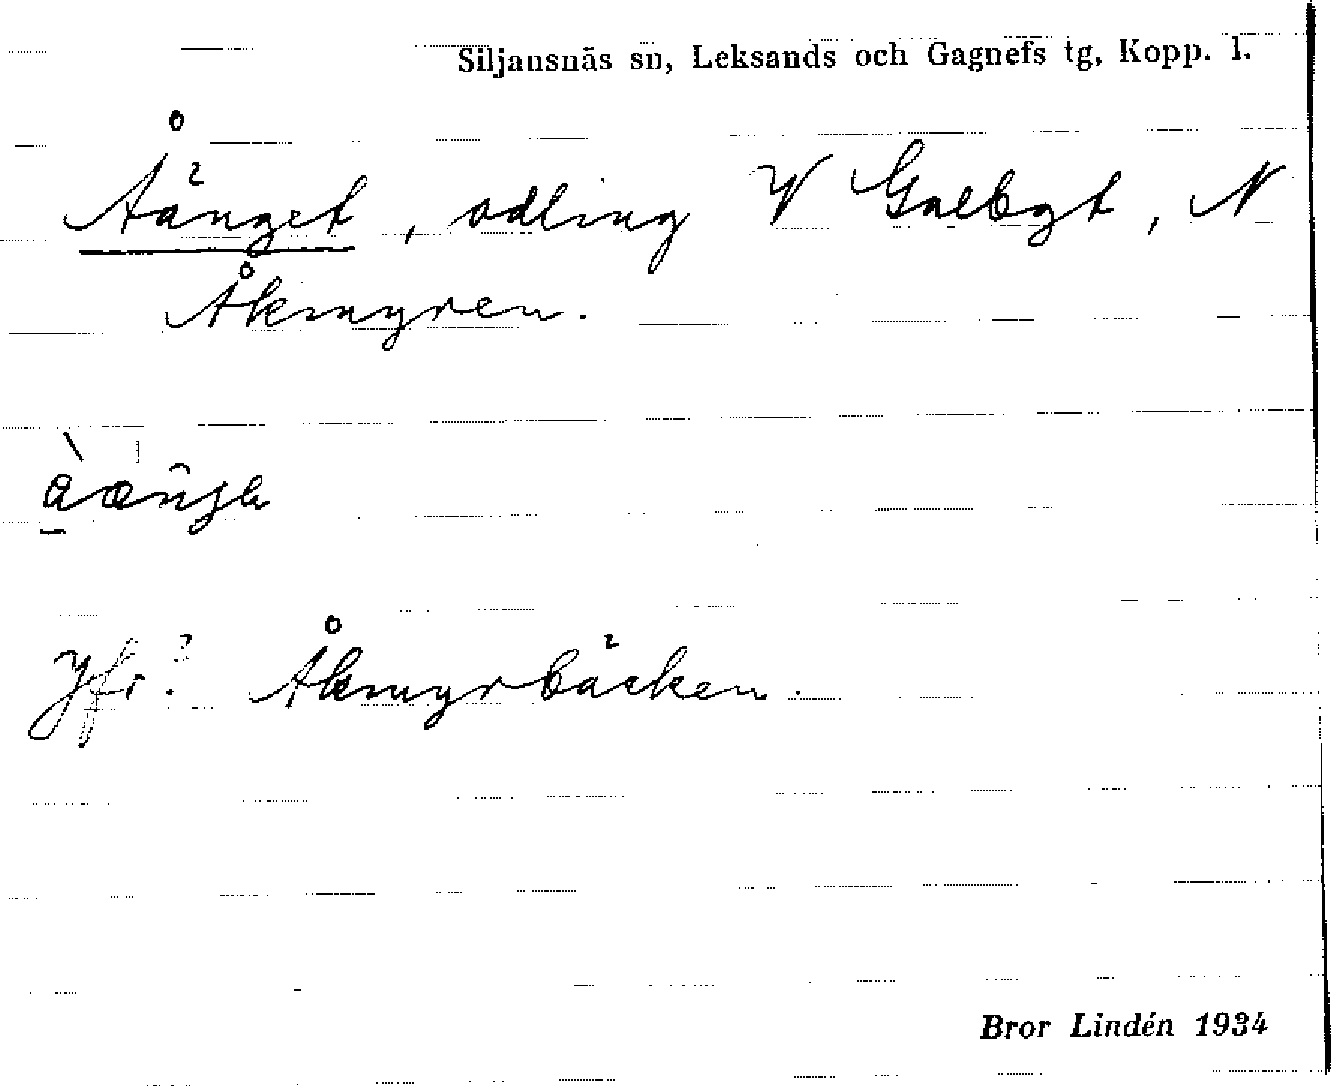 Siljansnäs sn, Leksands och Gagnefs tg, Kopp. l.
Åänget, odling V Gnlbgt, N
Åkmyren.
Jfr? Åkmyrbäcken.
Bror Lindén 1934